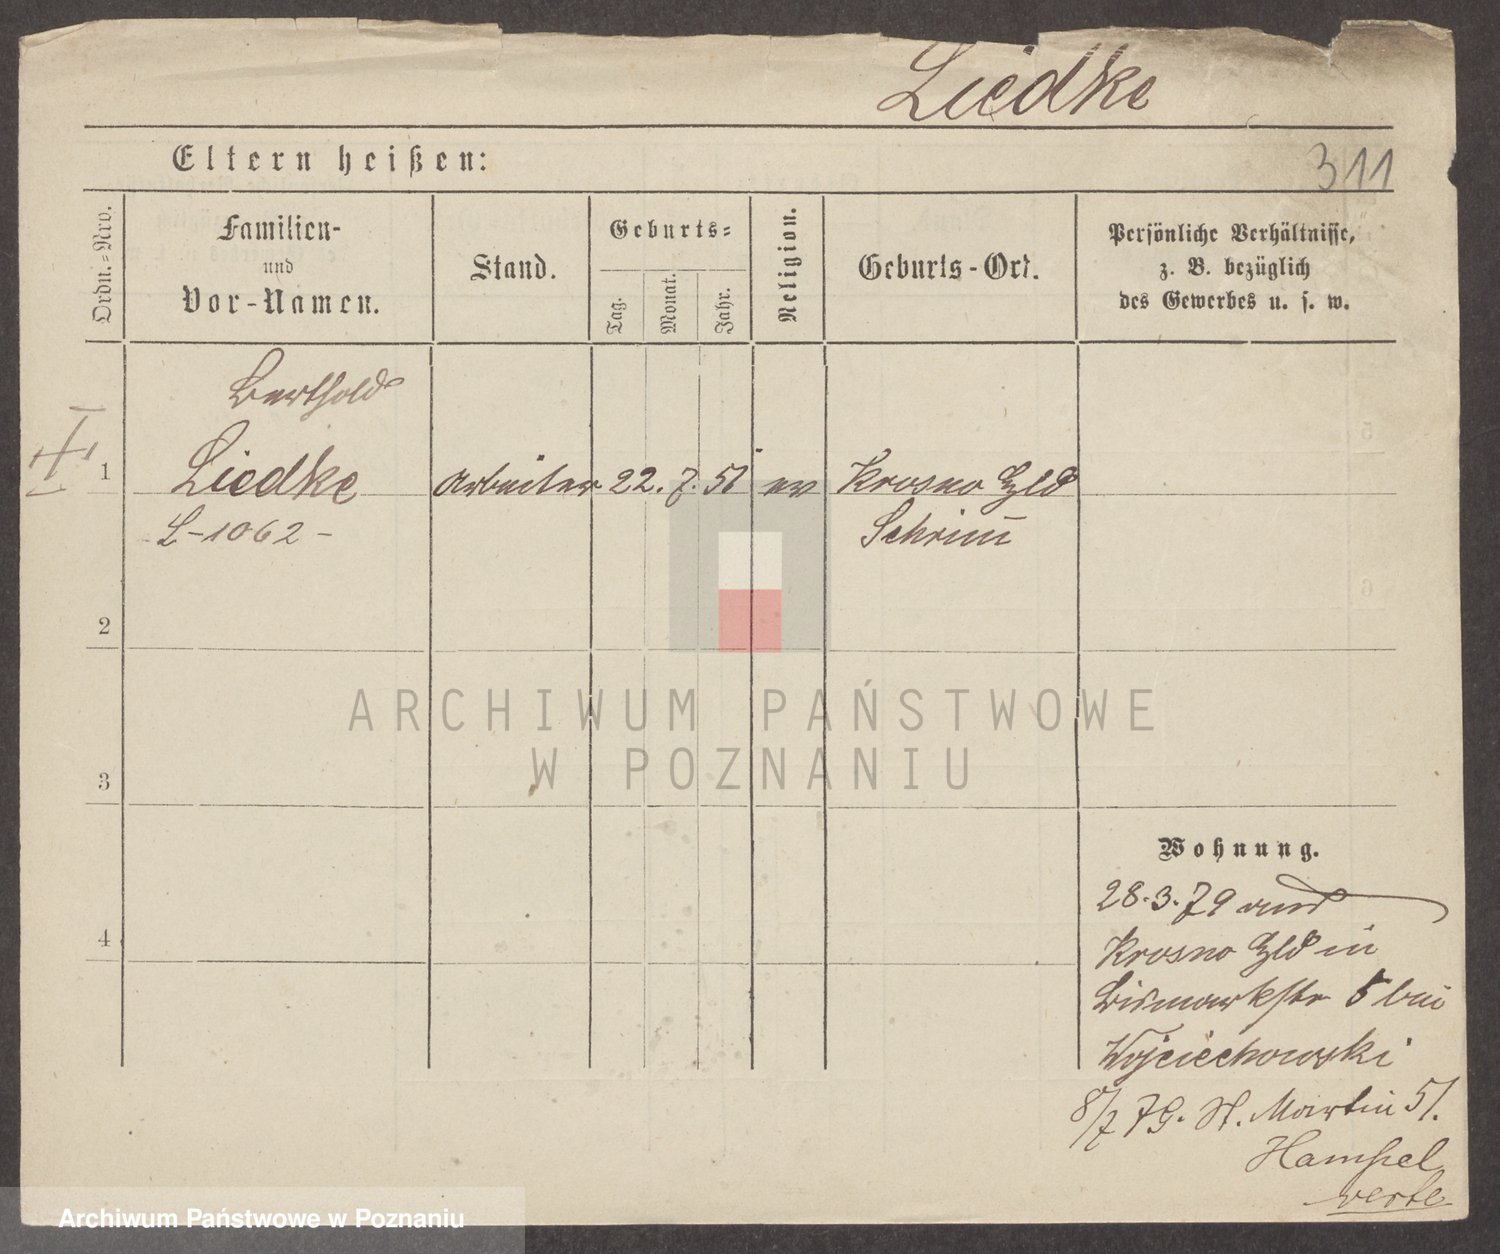 Liedke
Eltern heißen:
311
Ordn.=Nro.
Familien-
und
Vor-Namen.
Stand.
Geburts=
Tag.
Monat.
Jahr.
Religion.
Geburts-Ort.
Persönliche Verhältnisse,
z. B. bezüglich
des Gewerbes u. s. w.
Berthold
1 Liedke Arbeiter 22. 7. 51 ev Krosno Hld
L-1062- Schrim̄
2
3
4
Wohnung.
28.3.79 aus
Krosno Hld in
Bismarkstr 5 bei
Wojciechowski
8/7 79. St. Martin 51.
Hampel
verte
ARCHIWUM PAŃSTWOWE
W POZNANIU
Archiwum Państwowe w Poznaniu